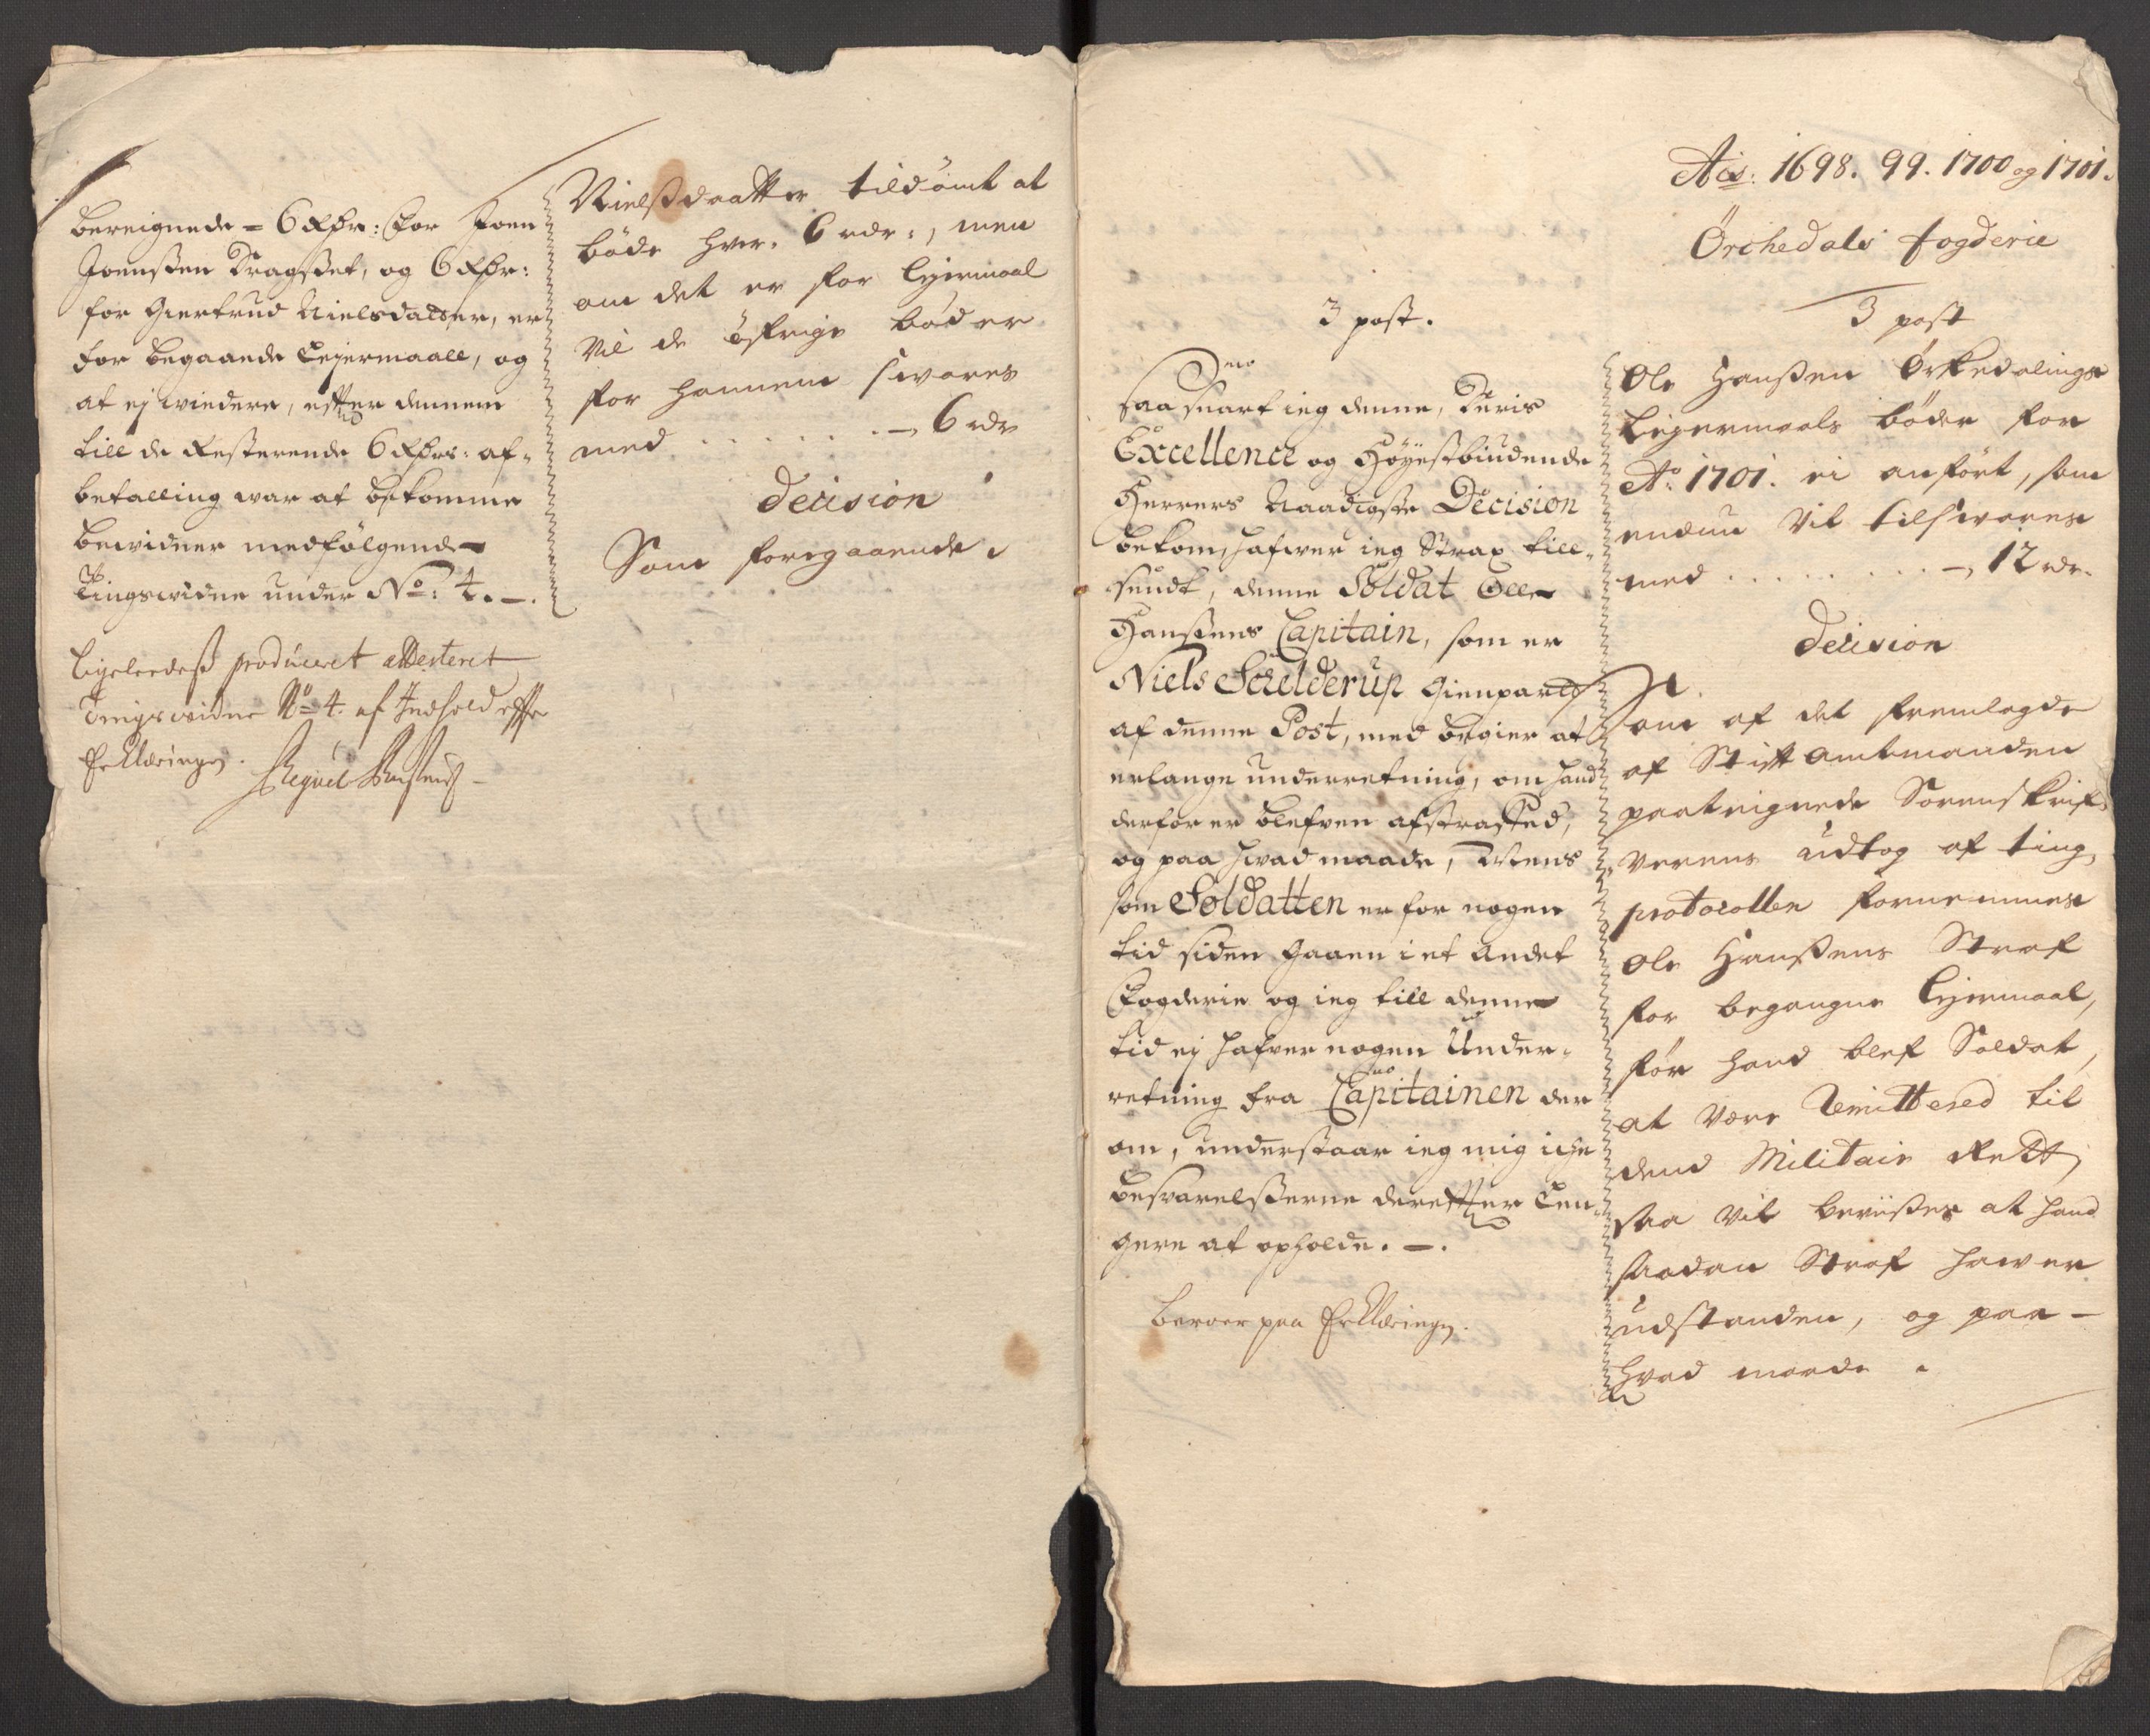 bereignede = 6 Rdr: for Joen
Joenssen Dragsset, og 6 Rdr:
for Giertrud Nielsdatter, er
for begaaende Leyermaall, og
at ej wiedere, efter dennem
till de Resterende 6 Rdrs: af-
betalling war at bekomme
bewidner medfølgende
Tingswidne under No: 4. —.
ligeledeß produceret attesteret
Tingswidne No 4. af Indhold effter
Erklæringen.
Nielßdaatter tildömt at
böde hver. 6 rdr:, men
om det er for lejermaal
vil de öfrige böder
for hannem swares
med . . . . . . — 6 rdr
Decision
Som foregaaende.
3 post.
Saa snart ieg denne, Deris
Excellence og Höyestbiudende
Herrers Naadigste Decision
bekom, hafwer ieg Strax till-
sendt, denne Soldat Olle
Hanssens Capitain, som er
Niels Schelderup Gienpart
af denne Post, med begier at
erlange underretning, om hand
derfor er blefven afstraffed,
og paa hvad maade, Mens
som Soldatten er for nogen
tid siden gaaen i et andet
Fogderie og ieg till denne
tid ej hafver nogen Under-
retning fra Capitainen der
om, understaar ieg mig iche
besvarelsserne derefter Len-
gere at opholde. —.
beroer paa Erklæringen.
Aos: 1698. 99. 1700 og 1701.
Örchedals fogderie
3 post
Ole Hanßen Örkedalings
Leyermaals böder for
Ao. 1701. ei anfört, som
endnu vil tilswares
med . . . . . . . — 12 rdr.
Decision
Som af det fremlagde
af Stift amtmanden
paateignede Sorenskrif-
verens udtog af ting-
protocollen fornemmes
Ole Hanßens Straf
for begangne lejermaal,
för hand blef Soldat,
at være Remittered til
dend Militair Rett,
saa vil beviißes at hand
saadan Straf hawer
udstanden, og paa —
hvad maade.